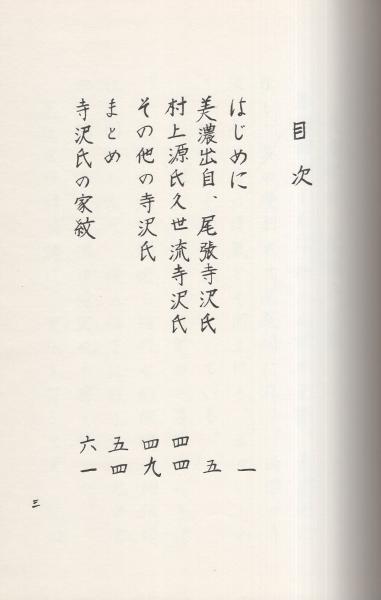 目次
はじめに 一
美濃出自、尾張寺沢氏 五
村上源氏久世流寺沢氏 四四
その他の寺沢氏 四九
まとめ 五四
寺沢氏の家紋 六一
三